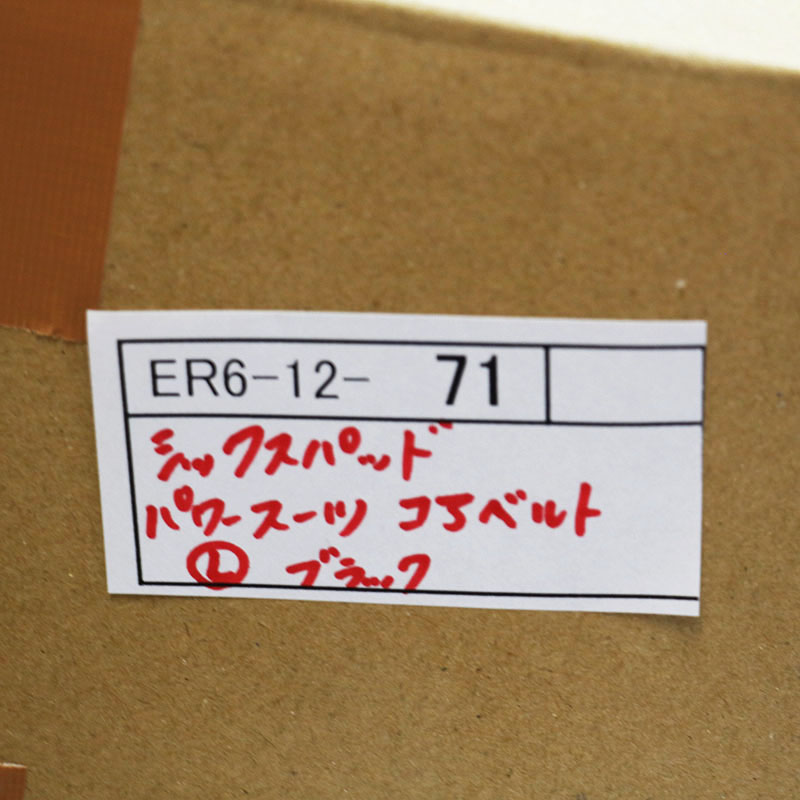 ER6-12- 71
シックスパッド
パワースーツ コアベルト
Ⓛ ブラック